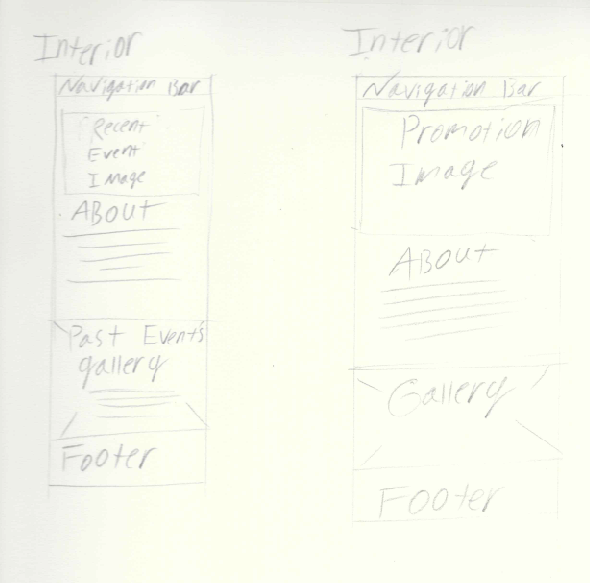 Interior
Navigation Bar
Recent
Event
Image
ABOUT
Past Events
gallery
Footer
Interior
Navigation Bar
Promotion
Image
ABOUT
Gallery
Footer